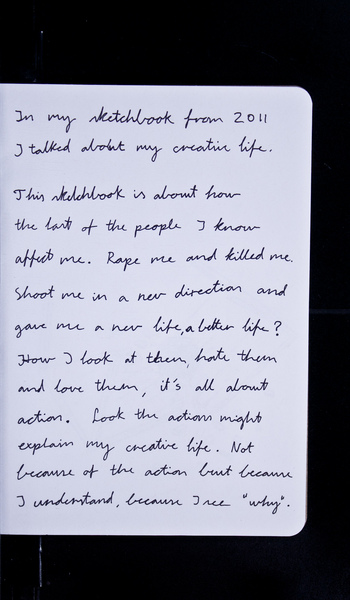 In my sketchbook from 2011
I talked about my creative life.
This sketchbook is about how
the last of the people I know
affect me. Rape me and killed me.
Shoot me in a new direction and
gave me a new life, a better life?
How I look at them, hate them
and love them, it's all about
action. Look the actions might
explain my creative life. Not
because of the action but because
I understand, because I see "why".